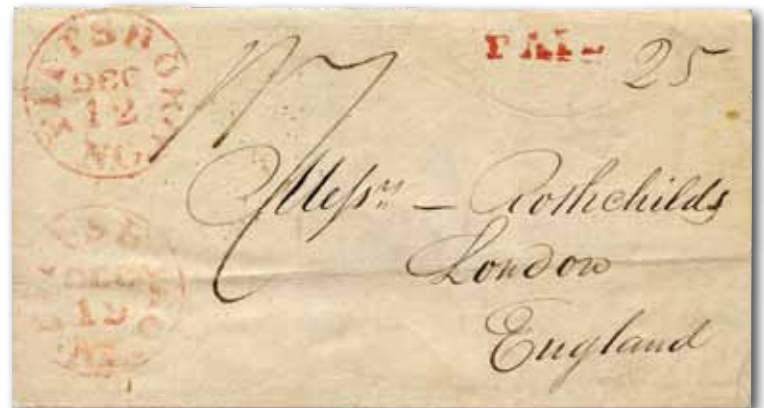 PITTSBORO
DEC
12
NC
PAID 25
Mess.rs — Rothchilds
London
England
DEC